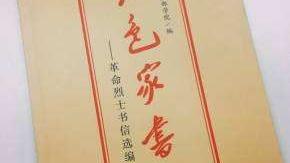 色家书
——革命烈士书信选编
学院／编